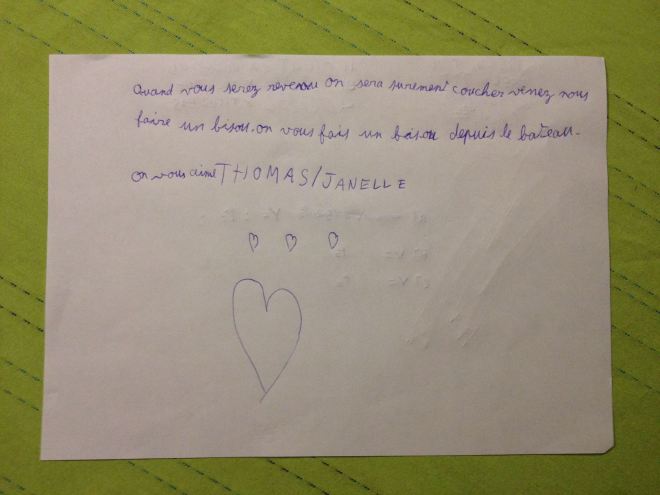 Quand vous serez revenou on sera surement coucher venez nous
faire un bisou. on vous fais un bisou depuis le bateau.
on vous aime THOMAS/JANELLE